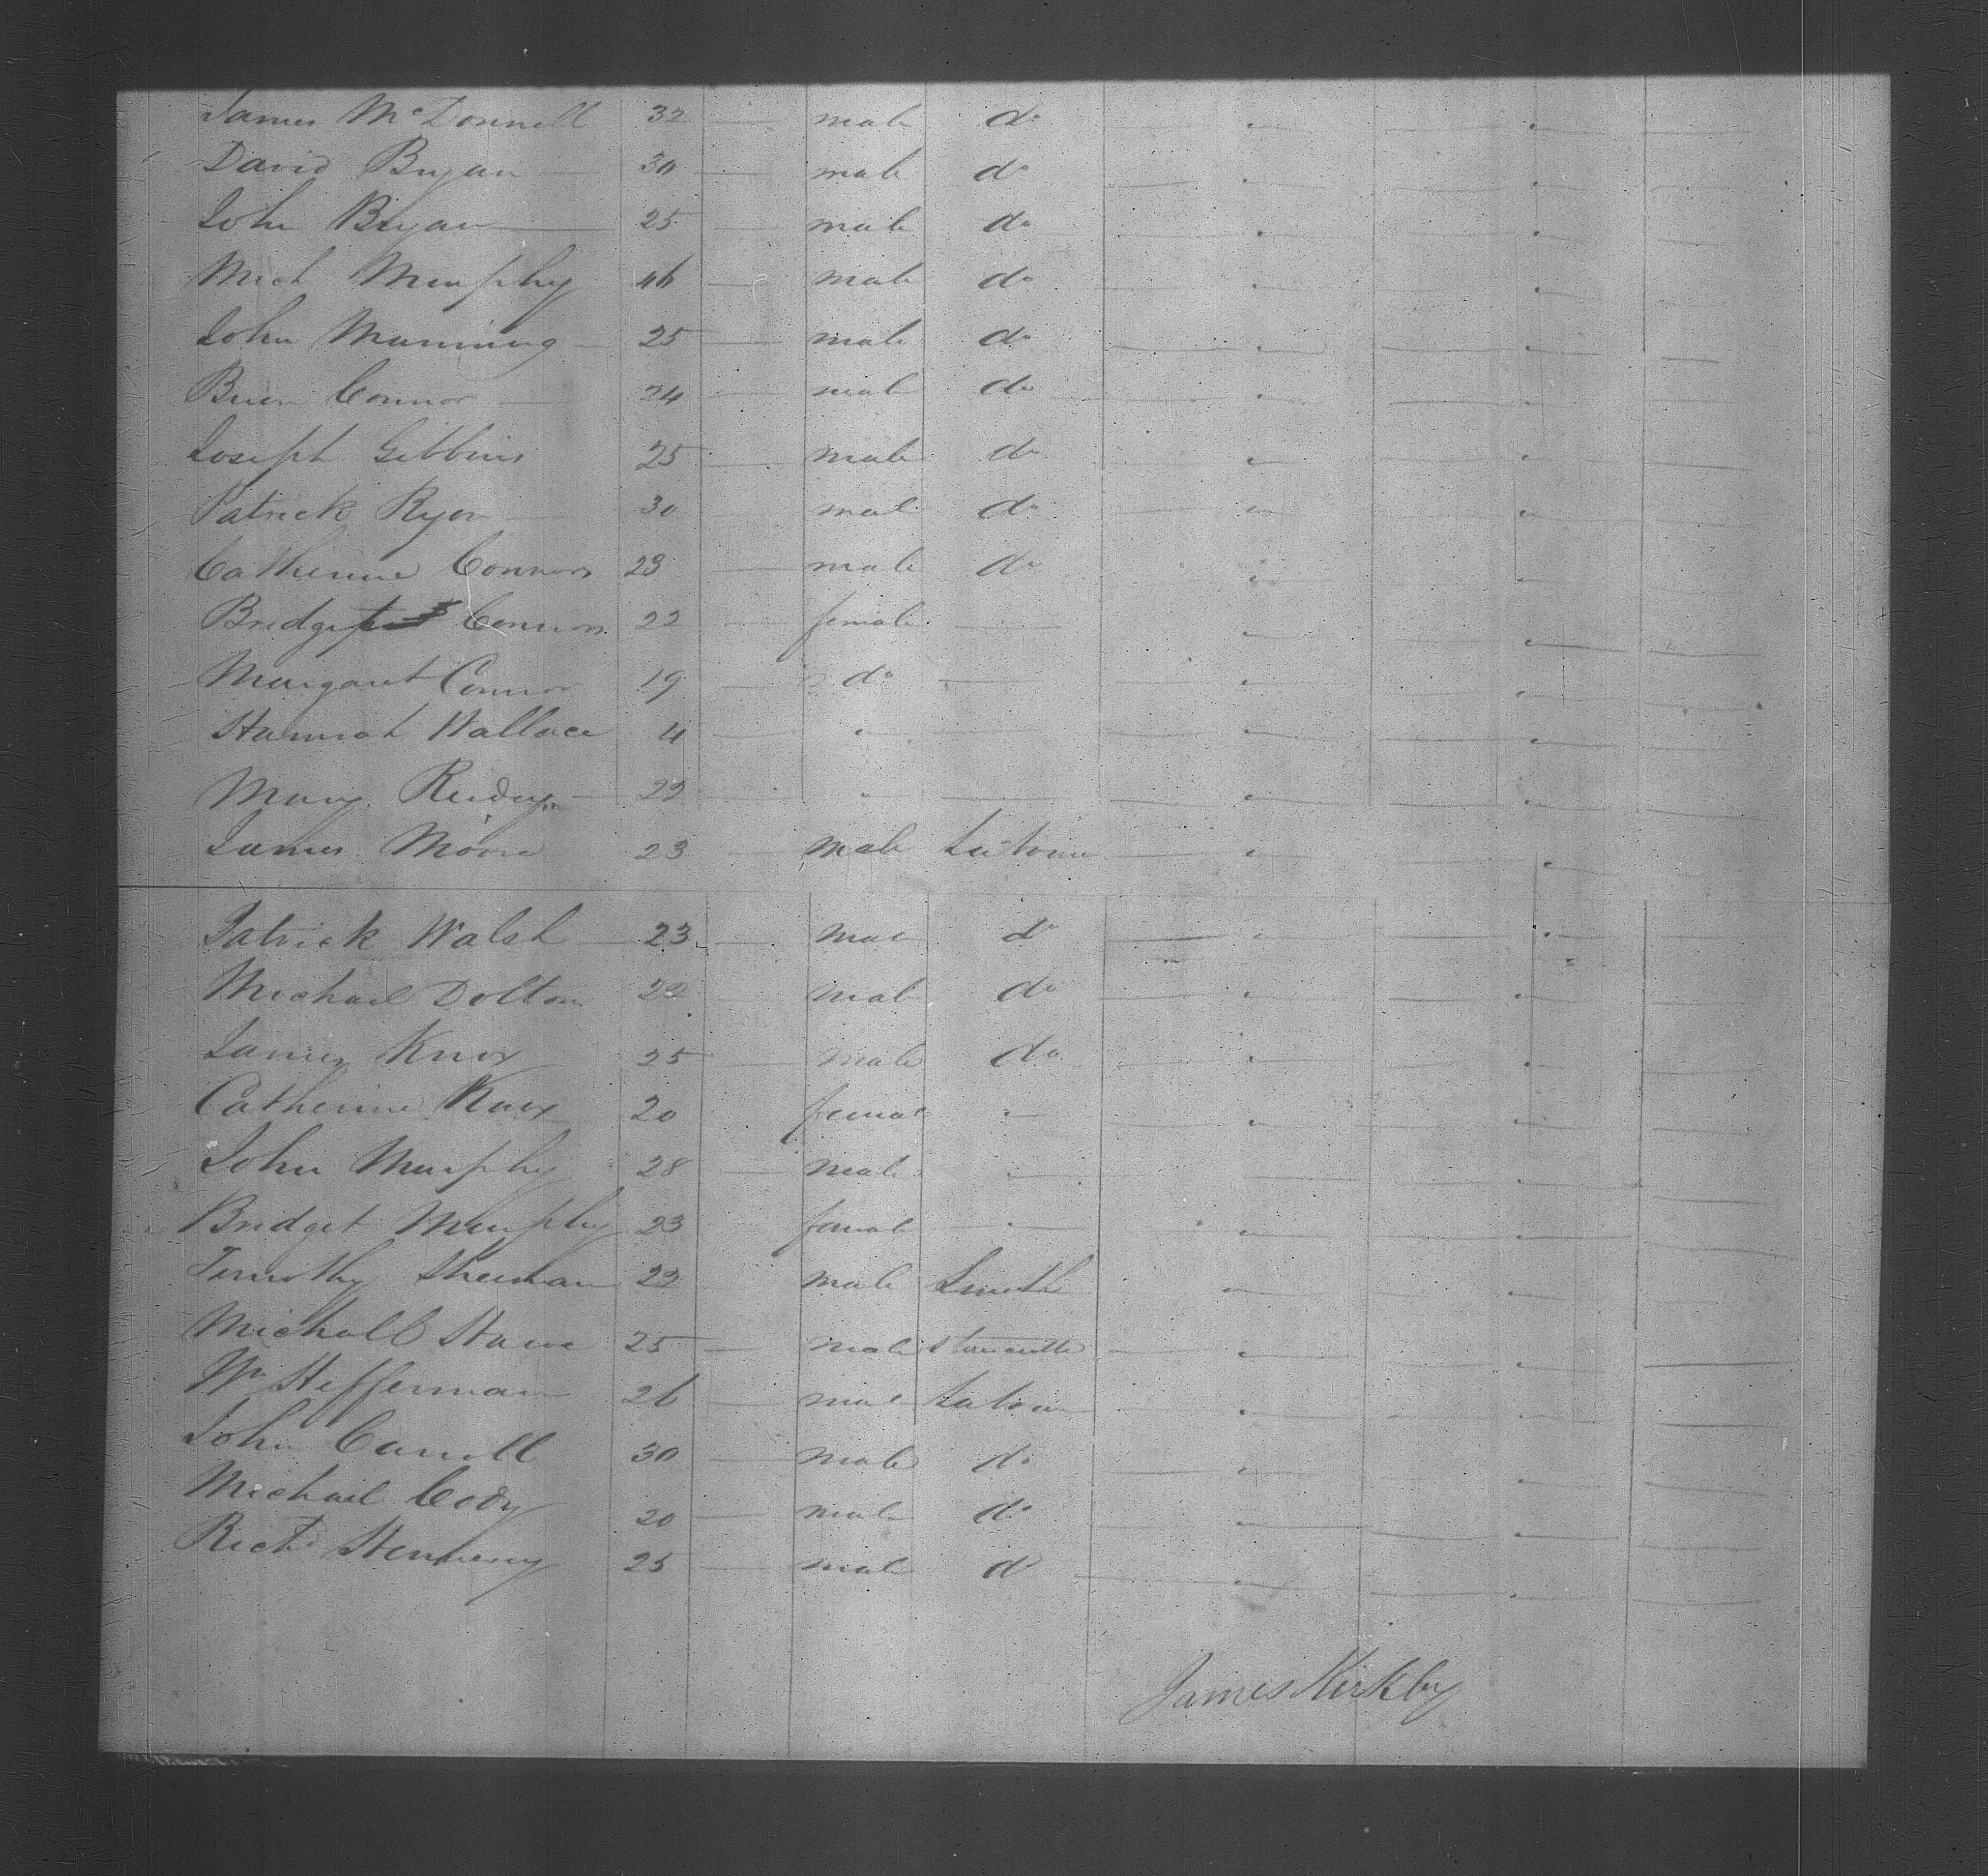 James McDonnell 32 male do
David Bryan 30 male do
John Bryan 25 male do
Mich Murphy 46 male do
John Manning 25 male do
Brien Connor 24 male do
Joseph Gibbins 25 male do
Patrick Ryon 30 male do
Catherine Connors 23 male do
Bridget Connors 22 female
Margaret Connor 19 do
Hannah Wallace 4 "
Mary Reidy 22 "
James Moore 23 male Labourer
Patrick Walsh 23 male do
Michael Dolton 22 male do
James Knox 25 male do
Catherine Knox 20 female "
John Murphy 28 male "
Bridget Murphy 23 female "
Timothy Sheehan 22 male Smith
Michall 25 male
Wm Heffernan 26 male Labour
John Carroll 30 male do
Michael Cody 20 male do
Richd Hennessy 25 male do
James Kirkby